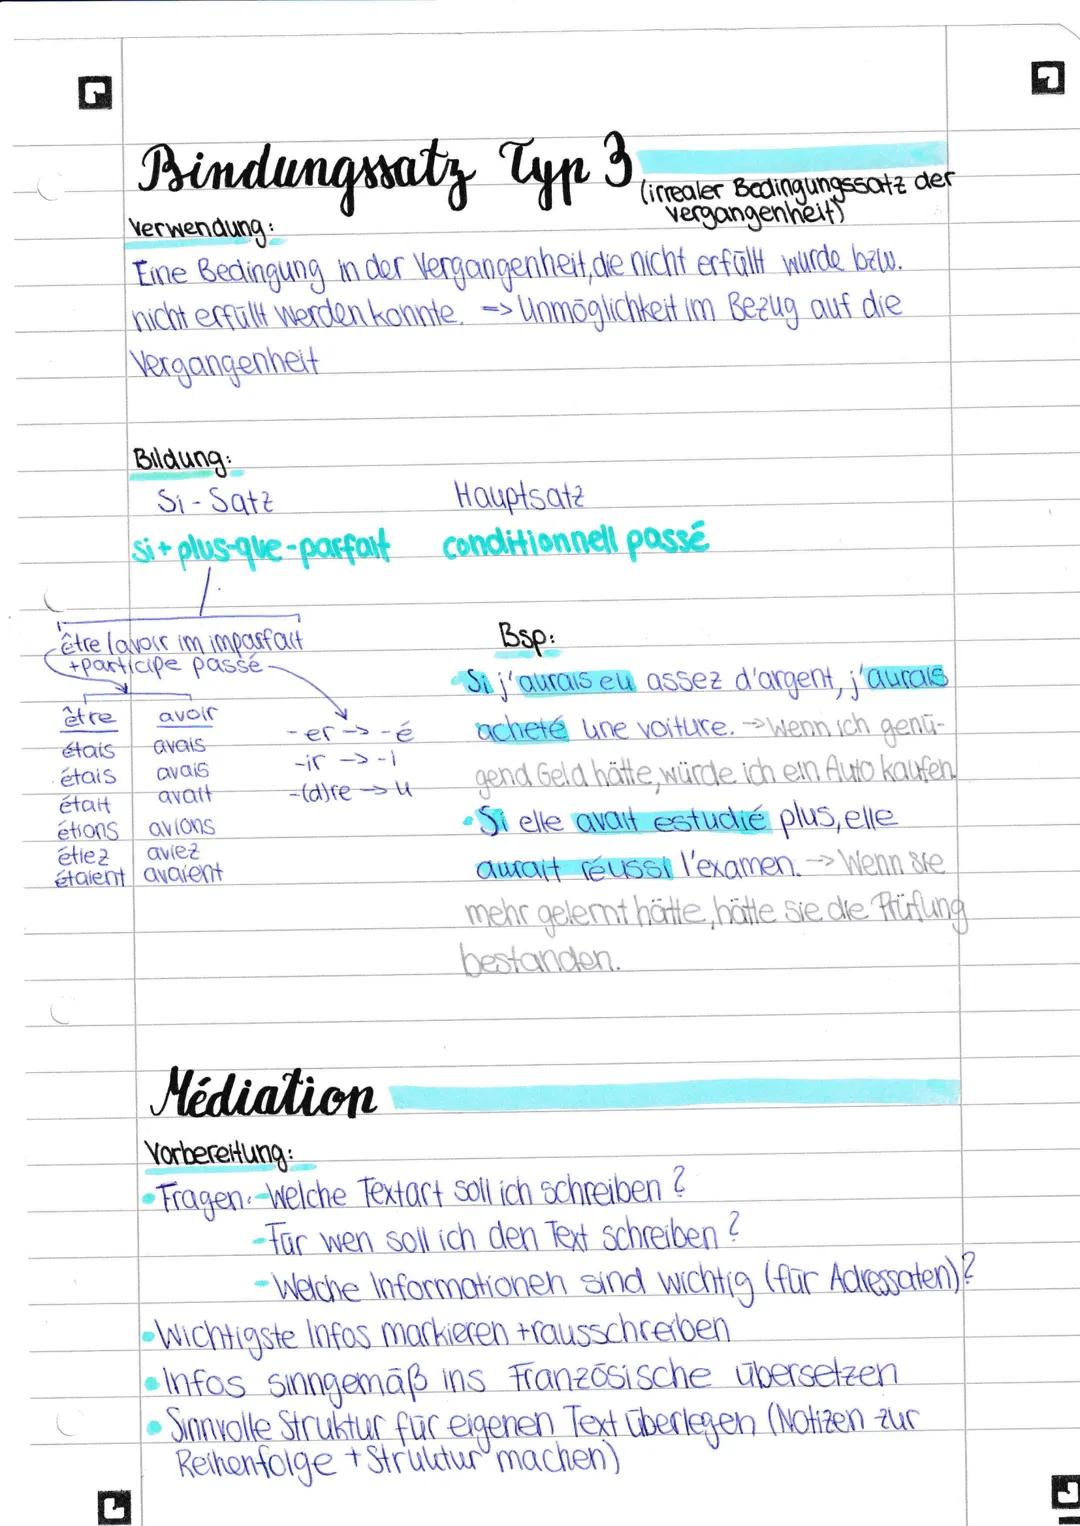 Bindungssatz Typ 3
(irrealer Bedingungssatz der
vergangenheit)
Verwendung:
Eine Bedingung in der Vergangenheit, die nicht erfüllt wurde bzw.
nicht erfüllt werden konnte. => Unmöglichkeit im Bezug auf die
Vergangenheit
Bildung:
Si-Satz Hauptsatz
si + plus-que-parfait conditionnell passé
être/avoir im imparfait
+participe passé
être avoir
étais avais
étais avais
était avait
étions avions
étiez aviez
étaient avaient
-er -> -é
-ir -> -i
-(d)re -> u
Bsp:
Si j'aurais eu assez d'argent, j'aurais
acheté une voiture. -> Wenn ich genü-
gend Geld hätte, würde ich ein Auto kaufen.
•Si elle avait estudié plus, elle
aurait réussi l'examen. -> Wenn sie
mehr gelernt hätte, hätte sie die Prüfung
bestanden.
Médiation
Vorbereitung:
•Fragen: -Welche Textart soll ich schreiben?
-Für wen soll ich den Text schreiben?
-Welche Informationen sind wichtig (für Adressaten)?
•Wichtigste Infos markieren + rausschreiben
•Infos sinngemäß ins Französische übersetzen
•Sinnvolle Struktur für eigenen Text überlegen (Notizen zur
Reihenfolge + Struktur machen)